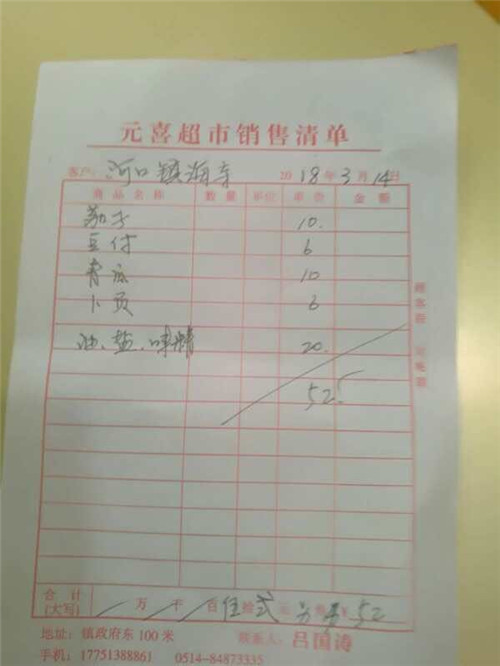 元喜超市销售清单
客户: 河口镇海寺 2018年3月14日
商品名称 数量 单位 单价 金额
茄子 10.
豆付 6
青瓜 10
卜页 6
油、盐、味精 20.
52.
合计(大写) 万 千 百 伍拾弍 元 ¥ 52
地址: 镇政府东100米 联系人: 吕国涛
手机: 17751388861 0514-84873335